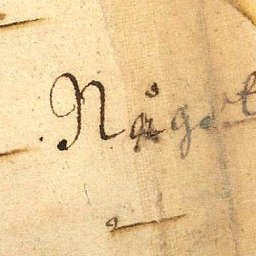 Något